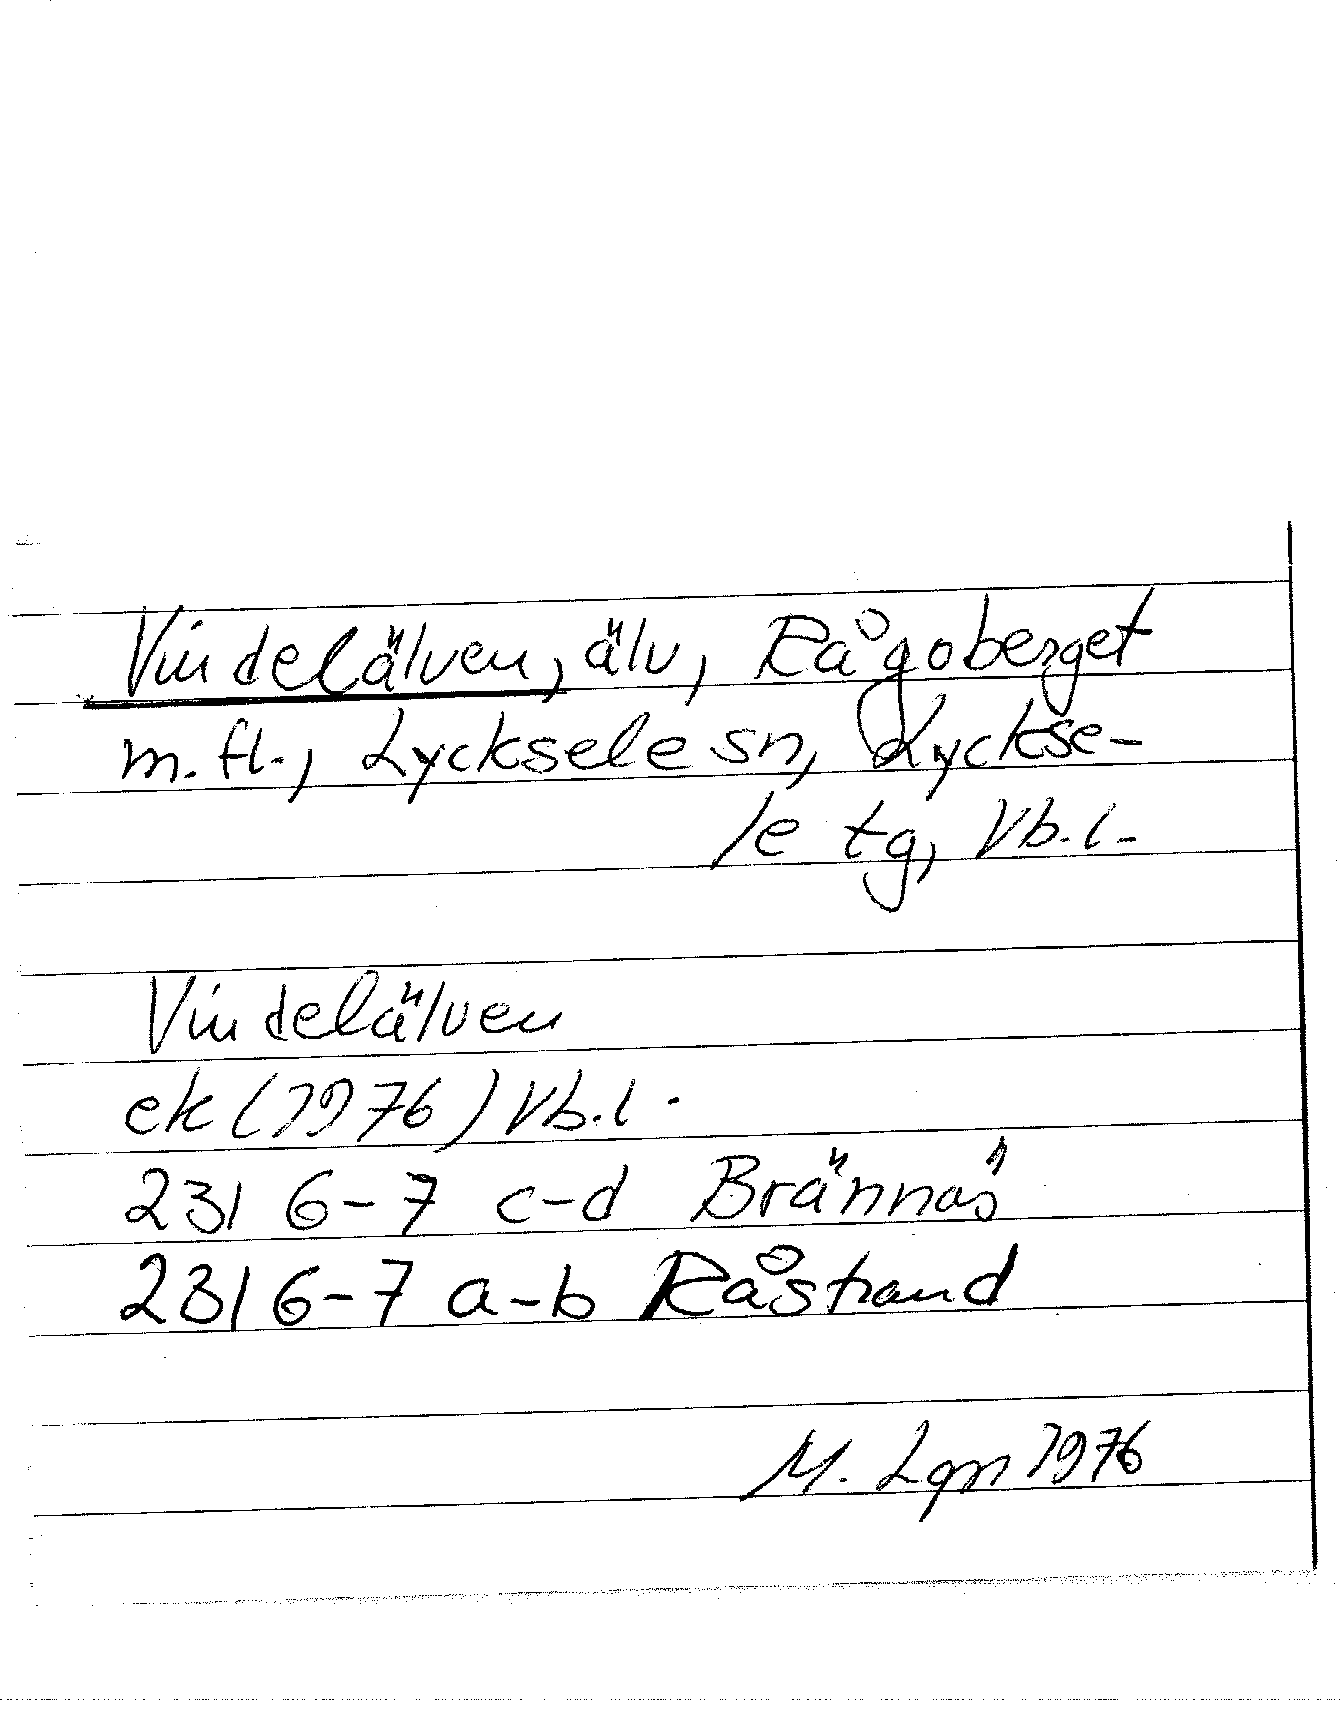 Vindelälven, älv, Rågoberget
m.fl., Lycksele sn, Lyckse-
le tg, Vb.l.
Vindelälven
ek (1976) Vb.l.
231 6-7 c-d Brännäs
231 6-7 a-b Råstrand
M. Lgn 1976